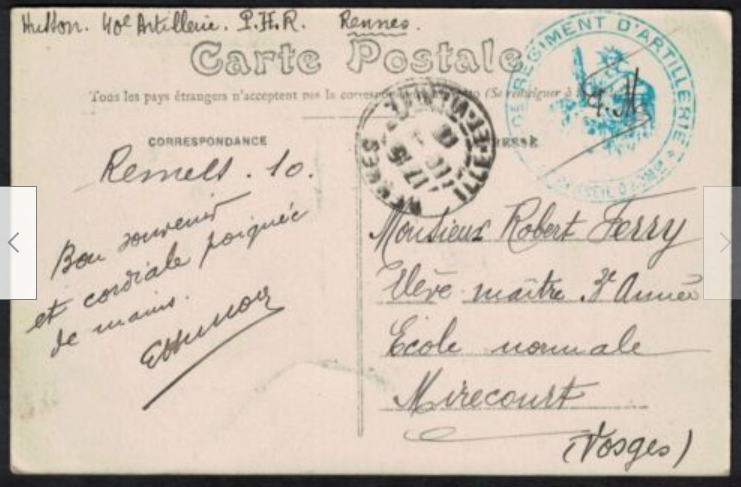 Hutton. 40e Artillerie. P.H.R. Rennes.
Carte Postale
Tous les pays étrangers n'acceptent pas la correspondance (Se renseigner à
CORRESPONDANCE
Rennes. 10.
Bon souvenir
et cordiale poignée
de mains.
RENNES
ILLE-ET-VILAINE
17 15
REGIMENT D'ARTILLERIE
Monsieur Robert Ferry
Elève maître 3e Année
Ecole normale
Mirecourt
(Vosges)